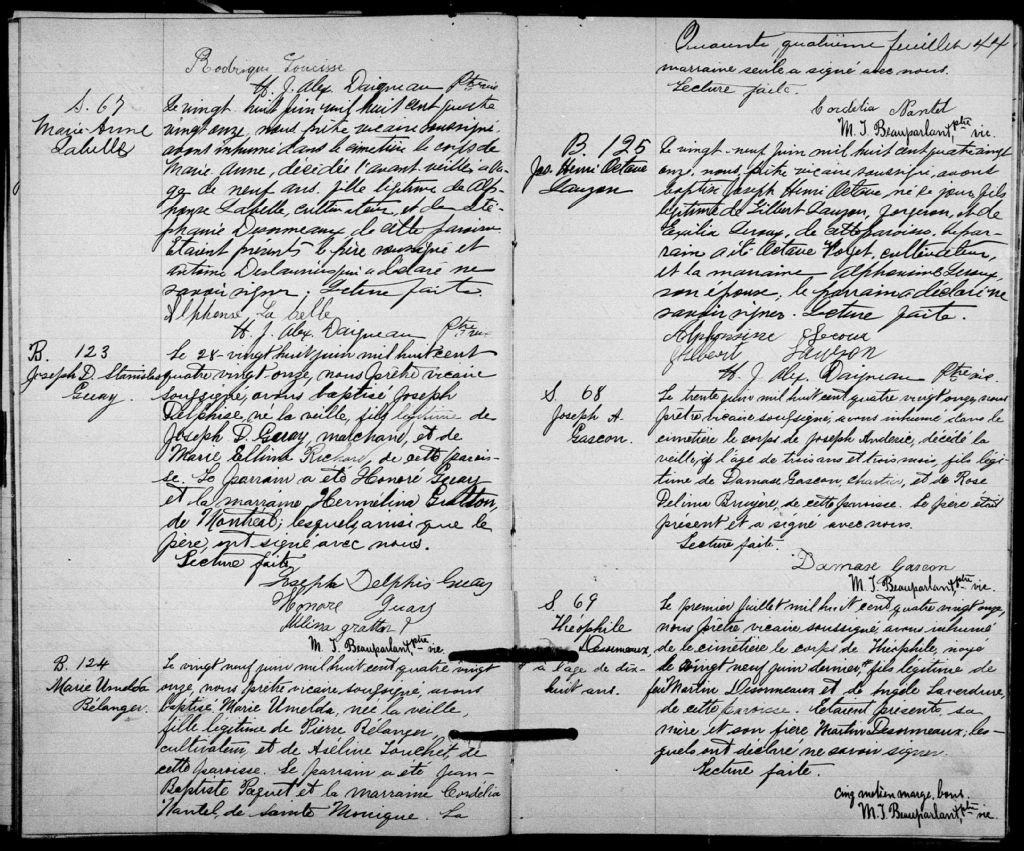 Rodrigue
H. J. Alex. Daigneau Ptre vic
S. 67
Marie-Anne
Labelle
Le vingt-huit juin mil huit cent quatre
vingt onze, nous prêtre vicaire soussigné
avons inhumé dans le cimetière le corps de
Marie Anne, décédée l'avant veille, a l'a-
ge de neuf ans, fille légitime de Alp-
honse Labelle, cultivateur, et de Sté-
phanie de cette paroisse
Etaient présents le père soussigné et
Antoine Deslauriers qui a déclaré ne
savoir signer; Lecture faite.
Alphonse La belle
H. J. Alex. Daigneau Ptre vic
B. 123
Joseph D. Stanislas
Guay.
Le 28- vingt huit juin mil huit cent
quatre vingt onze, nous prêtre vicaire
soussigné, avons baptisé Joseph
Delphise, né la veille, fils légitime de
Joseph D. Guay, marchand, et de
Marie Ellina Richard, de cette parois-
se. Le parrain a été Honoré Guay
et la marraine Hermélina Gratton,
de Montréal; lesquels ainsi que le
père, ont signé avec nous.
Lecture faite
Joseph Delphis Guay
Honore Guay
gratton
M. J. Beauparlant, ptre vic.
B. 124
Marie Umelda
Bélanger.
Le vingt neuf juin mil huit cent quatre vingt
onze, nous prêtre vicaire soussigné, avons
baptisé Marie Umelda, née la veille,
fille légitime de Pierre Bélanger,
cultivateur, et de Aséline Louchet, de
cette paroisse. Le parrain a été Jean-
Baptiste Paquet et la marraine Cordelia
Nantel, de Sainte Monique. La
Quarante quatrième feuillet 44
marraine seule a signé avec nous.
Lecture faite.
Cordelia Nantel
M. J. Beauparlant, ptre vic.
B. 125
Jos. Henri Octave
Lauzon
Le vingt-neuf juin mil huit cent quatre vingt
onze, nous prêtre vicaire soussigné, avons
baptisé Joseph Henri Octave né ce jour, fils
légitime de Gilbert Lauzon, forgeron, et de
Leroux, de cette paroisse. Le par-
rain a été Octave cultivateur,
et la marraine Alphonsine Leroux,
son épouse; le parrain a déclaré ne
savoir signer. Lecture faite.
Alphonsine Leroux
Gilbert Lauzon
H. J. Alex. Daigneau Ptre vic.
S. 68
Joseph A.
Gascon.
Le trente juin mil huit cent quatre vingt onze, nous
prêtre, vicaire soussigné, avons inhumé dans le
cimetière le corps de Joseph Auderic, décédé la
veille, à l'âge de trois ans et trois mois, fils légi-
time de Damase Gascon, charretier, et de Rose
Delima Bruyère, de cette paroisse. Le père était
présent et a signé avec nous.
Lecture faite.
Damase Gascon
M. J. Beauparlant, ptre vic.
S. 69
Théophile
Desormeaux,
à l'age de dix-
huit ans.
Le premier juillet mil huit cent quatre vingt onze,
nous prêtre vicaire soussigné, avons inhumé
de le cimetière le corps de Théophile, noyé
le vingt neuf juin dernier, fils légitime de
feu Martin Desormeaux et de Angèle Laverdure,
de cette paroisse. Etaient présents, sa
mère et son frère Martin Desormeaux, les-
quels ont déclaré ne savoir signer.
Lecture faite.
Cinq mots en marge, bons.
M. J. Beauparlant, ptre vic.